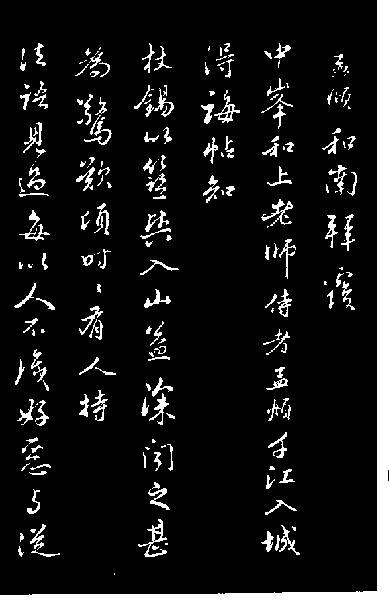 孟頫和南拜覆
中峯和上老師侍者孟頫江入城
得誨帖知
杖錫以籃輿入山益深聞之甚
為驚歎頃時〻有人持
法語見過每以人不識好惡与從